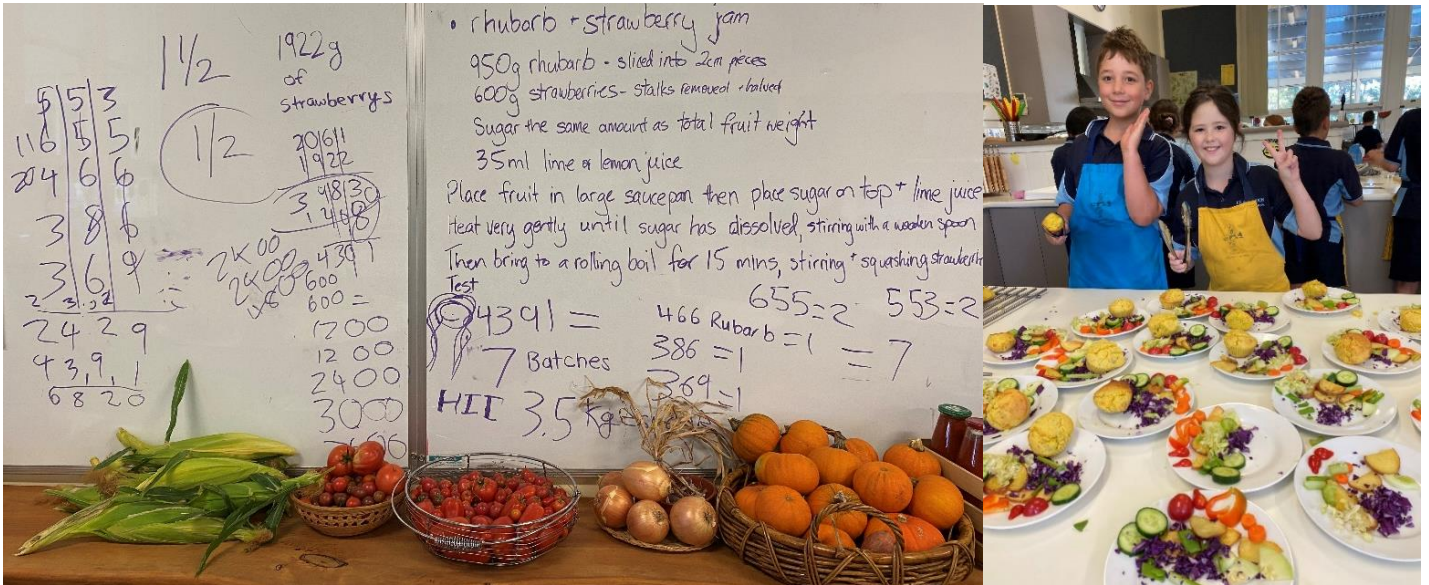 1 1/2
1922g
of
strawberrys
5 5 3
6 5 5
4 6 6
3 8 6
3 6 9
2 4 2 9
4 3 9 1
6 8 2 0
1/2
1922
4391
600
600 =
1200
1200
2400
3000
• rhubarb + strawberry jam
950g rhubarb - sliced into 2cm pieces
600g strawberries - stalks removed + halved
Sugar the same amount as total fruit weight
35ml lime or lemon juice
Place fruit in large saucepan then place sugar on top + lime juice
Heat very gently until sugar has dissolved, stirring with a wooden spoon
Then bring to a rolling boil for 15 mins, stirring + squashing
Test
4391 =
7 Batches
3.5 kg
655=2 553=2
466 Rubarb =1
386 =1
369 =1
= 7